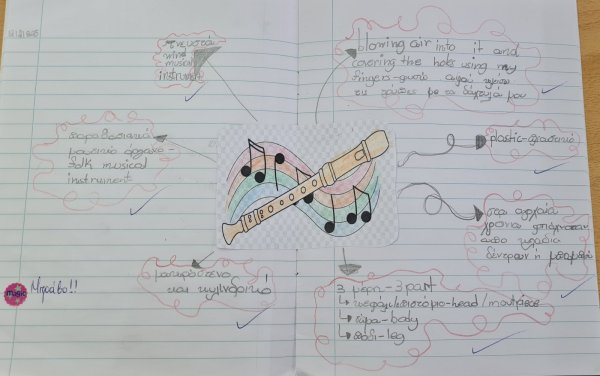 πνευστό
wind
musical
instrument
blowing air into it and
covering the hols using my
fingers-φυσώ αερά κλείνω
τις τρύπες με τα δάχτυλά μου
παραδοσιακό
μουσικό όργανο-
folk musical
instrument
plastic-πλαστικό
στα αρχαία
χρόνια φτιάχνονταν
από κλαδιά
δέντρων ή μπαμπού
μακρόστενο
και κυλινδρικό
3 μέρη-3 part
↳ κεφάλι/επιστόμιο-head/
↳ σώμα-body
↳ πόδι-leg
music
Μπράβο!!